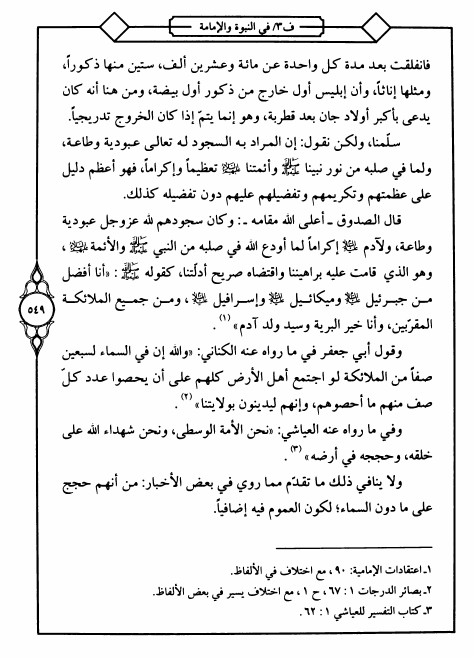 ف٣/ في النبوة والإمامة
فانفلقت بعد مدة كل واحدة عن مائة وعشرين ألف، ستين منها ذكوراً،
ومثلها إناثاً، وأن إبليس أول خارج من ذكور أول بيضة، ومن هنا أنه كان
يدعى بأكبر أولاد جان بعد قطربة، وهو إنما يتمّ إذا كان الخروج تدريجياً.
سلّمنا، ولكن نقول: إن المراد به السجود لـه تعالى عبودية وطاعة،
ولما في صلبه من نور نبينا ﷺ وأئمتنا تعظيماً وإكراماً، فهو أعظم دليل
على عظمتهم وتكريمهم وتفضيلهم عليهم دون تفضيله كذلك.
قال الصدوق ـ أعلى الله مقامه ـ: وكان سجودهم لله عزوجل عبودية
وطاعة، ولآدم إكراماً لما أودع الله في صلبه من النبي ﷺ والأئمة ،
وهو الذي قامت عليه براهيننا واقتضاه صريح أدلّتنا، كقوله ﷺ: «أنا أفضل
من جبرئيل وميكائيل وإسرافيل ، ومن جميع الملائكة
المقرّبين، وأنا خير البرية وسيد ولد آدم» (١).
وقول أبي جعفر في ما رواه عنه الكناني: «والله إن في السماء لسبعين
صفاً من الملائكة لو اجتمع أهل الأرض كلهم على أن يحصوا عدد كلّ
صف منهم ما أحصوهم، وإنهم ليدينون بولايتنا» (٢).
وفي ما رواه عنه العياشي: «نحن الأمة الوسطى، ونحن شهداء الله على
خلقه، وحججه في أرضه» (٣).
ولا ينافي ذلك ما تقدّم مما روي في بعض الأخبار: من أنهم حجج
على ما دون السماء؛ لكون العموم فيه إضافياً.
٥٤٩
١ـ اعتقادات الإمامية: ٩٠، مع اختلاف في الألفاظ.
٢ـ بصائر الدرجات ١: ٦٧، ح ١، مع اختلاف يسير في بعض الألفاظ.
٣ـ كتاب التفسير للعياشي ١: ٦٢.